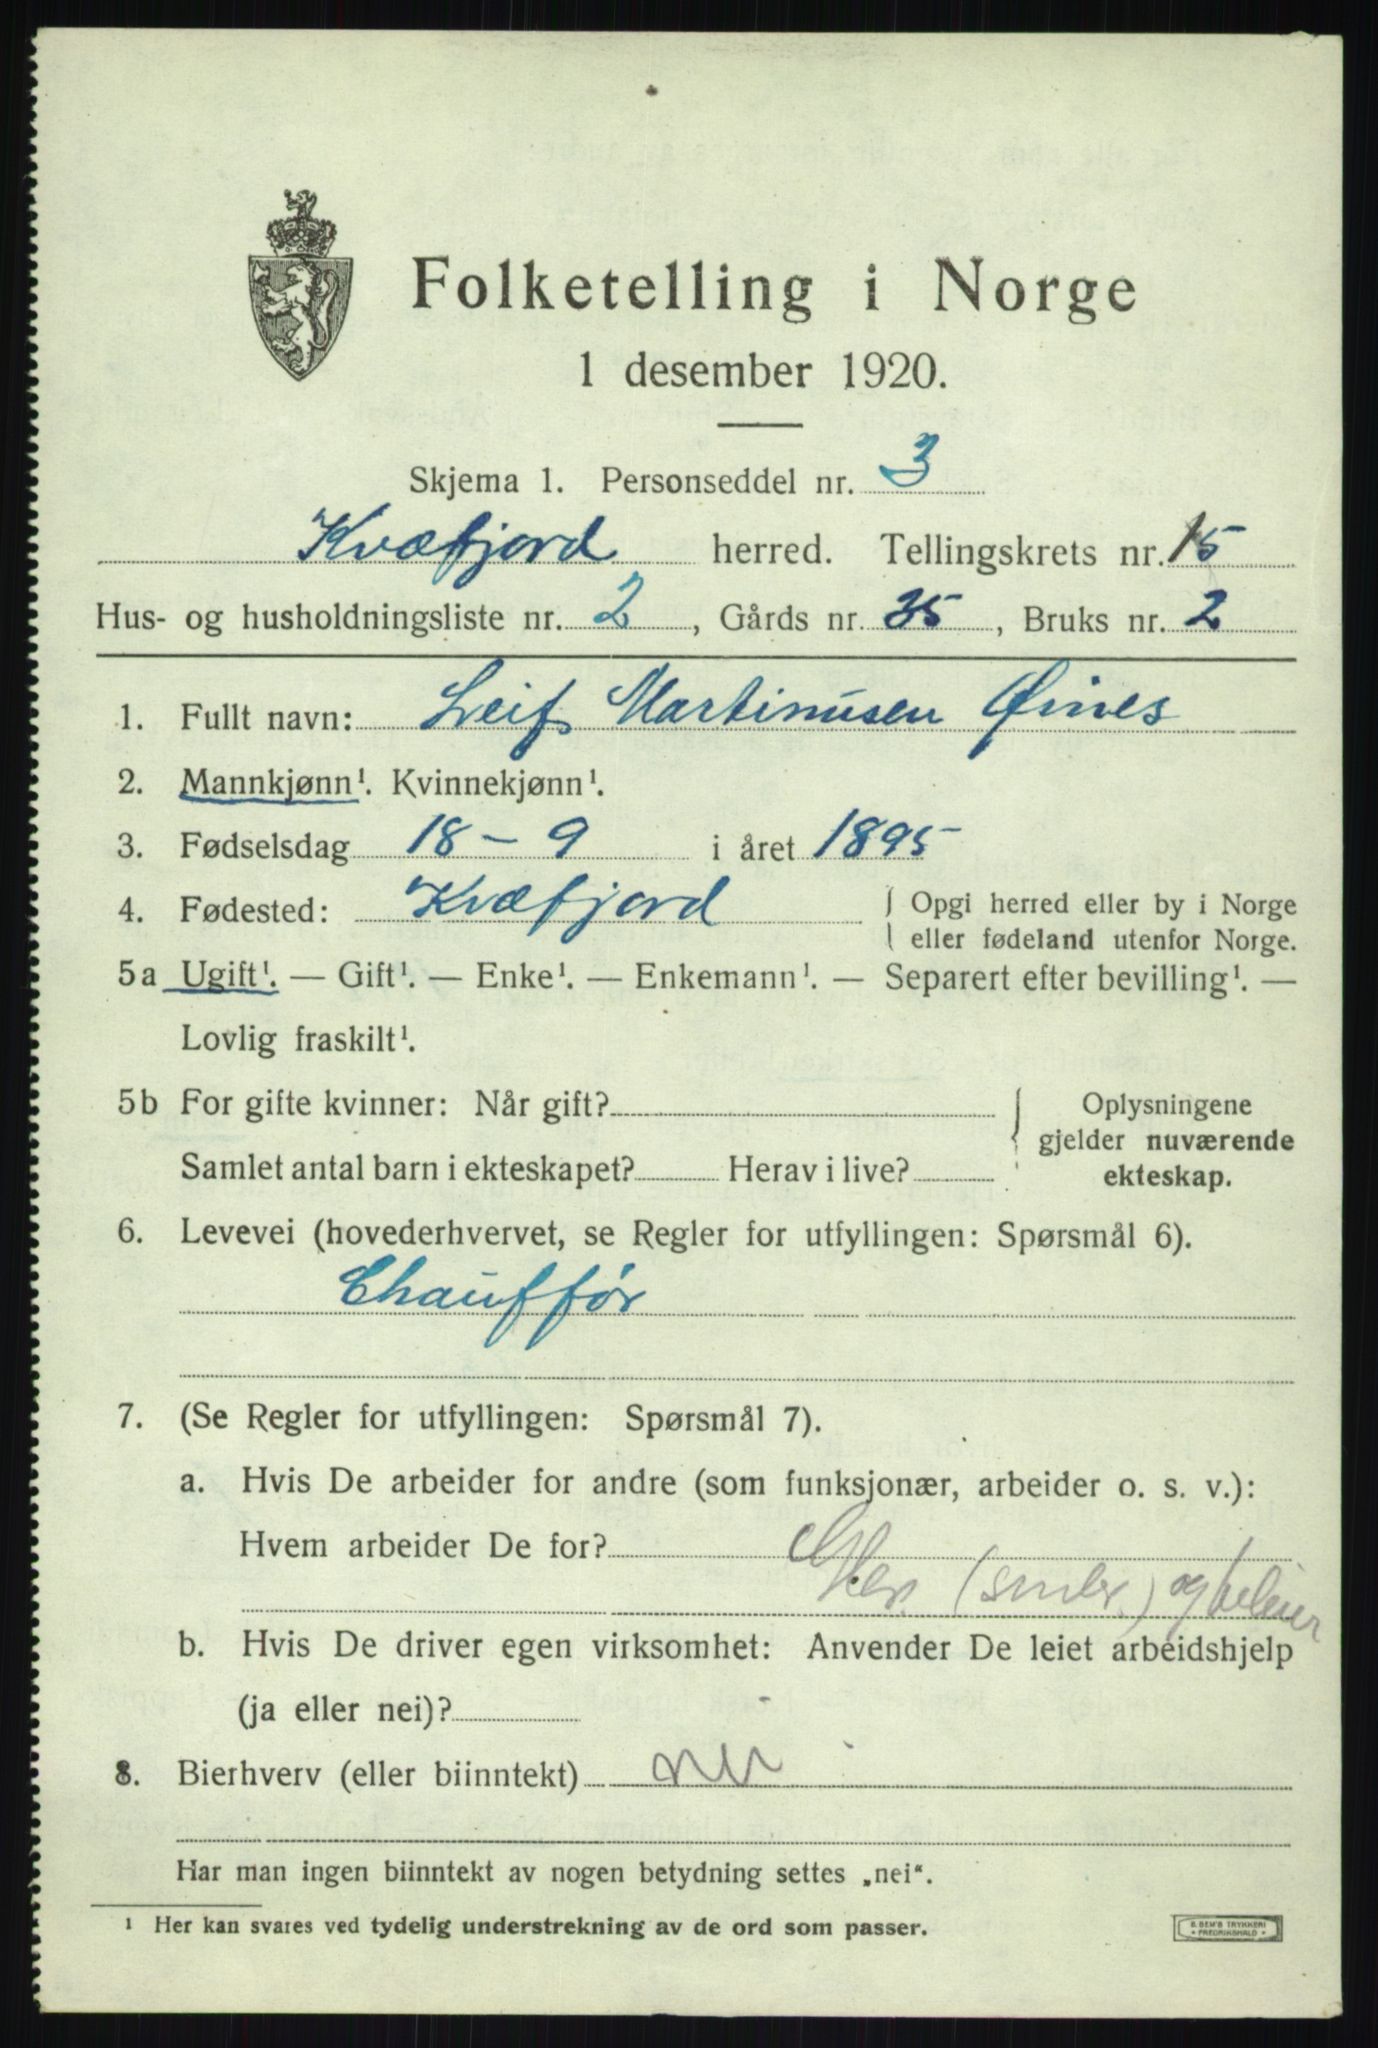 Folketelling i Norge
1 desember 1920.
Skjema 1. Personseddel nr. 3
Kvæfjord herred. Tellingskrets nr. 15
Hus- og husholdningsliste nr. 2, Gårds nr. 35, Bruks nr. 2
1. Fullt navn: Leif Martinusen Øines
2. Mannkjønn¹. Kvinnekjønn¹.
3. Fødselsdag 18 - 9 i året 1895
4. Fødested: Kvæfjord { Opgi herred eller by i Norge
eller fødeland utenfor Norge.
5a Ugift¹. — Gift¹. — Enke¹. — Enkemann¹. — Separert efter bevilling¹. —
Lovlig fraskilt¹.
5b For gifte kvinner: Når gift?
Samlet antal barn i ekteskapet? Herav i live?
Oplysningene
gjelder nuværende
ekteskap.
6. Levevei (hovederhvervet, se Regler for utfyllingen: Spørsmål 6).
Chauffør
7. (Se Regler for utfyllingen: Spørsmål 7).
a. Hvis De arbeider for andre (som funksjonær, arbeider o. s. v.):
Hvem arbeider De for?
b. Hvis De driver egen virksomhet: Anvender De leiet arbeidshjelp
(ja eller nei)?
8. Bierhverv (eller biinntekt) nei
Har man ingen biinntekt av nogen betydning settes „nei“.
1 Her kan svares ved tydelig understrekning av de ord som passer.
E. SEM'S TRYKKERI
FREDRIKSHALD